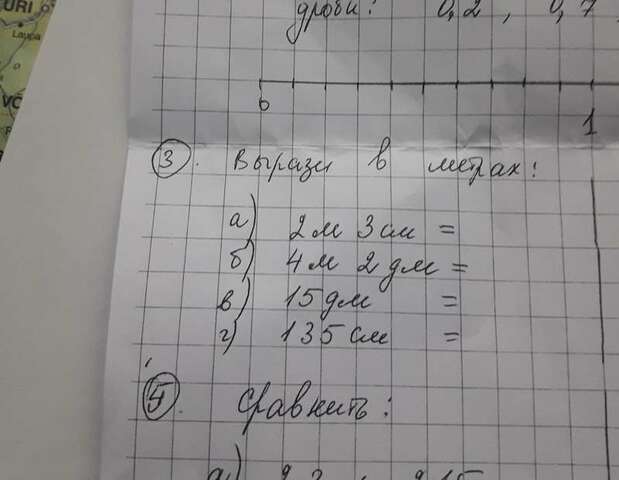 URI
Laupa
дроби: 0,2 , 0,7
0 1
3. Вырази в метрах:
а) 2 м 3 см =
б) 4 м 2 дм =
в) 15 дм =
г) 135 см =
Сравнить:
а)